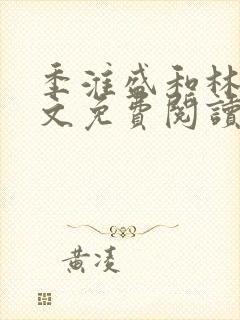 季淮盛和林
文免費閱讀
黃凌